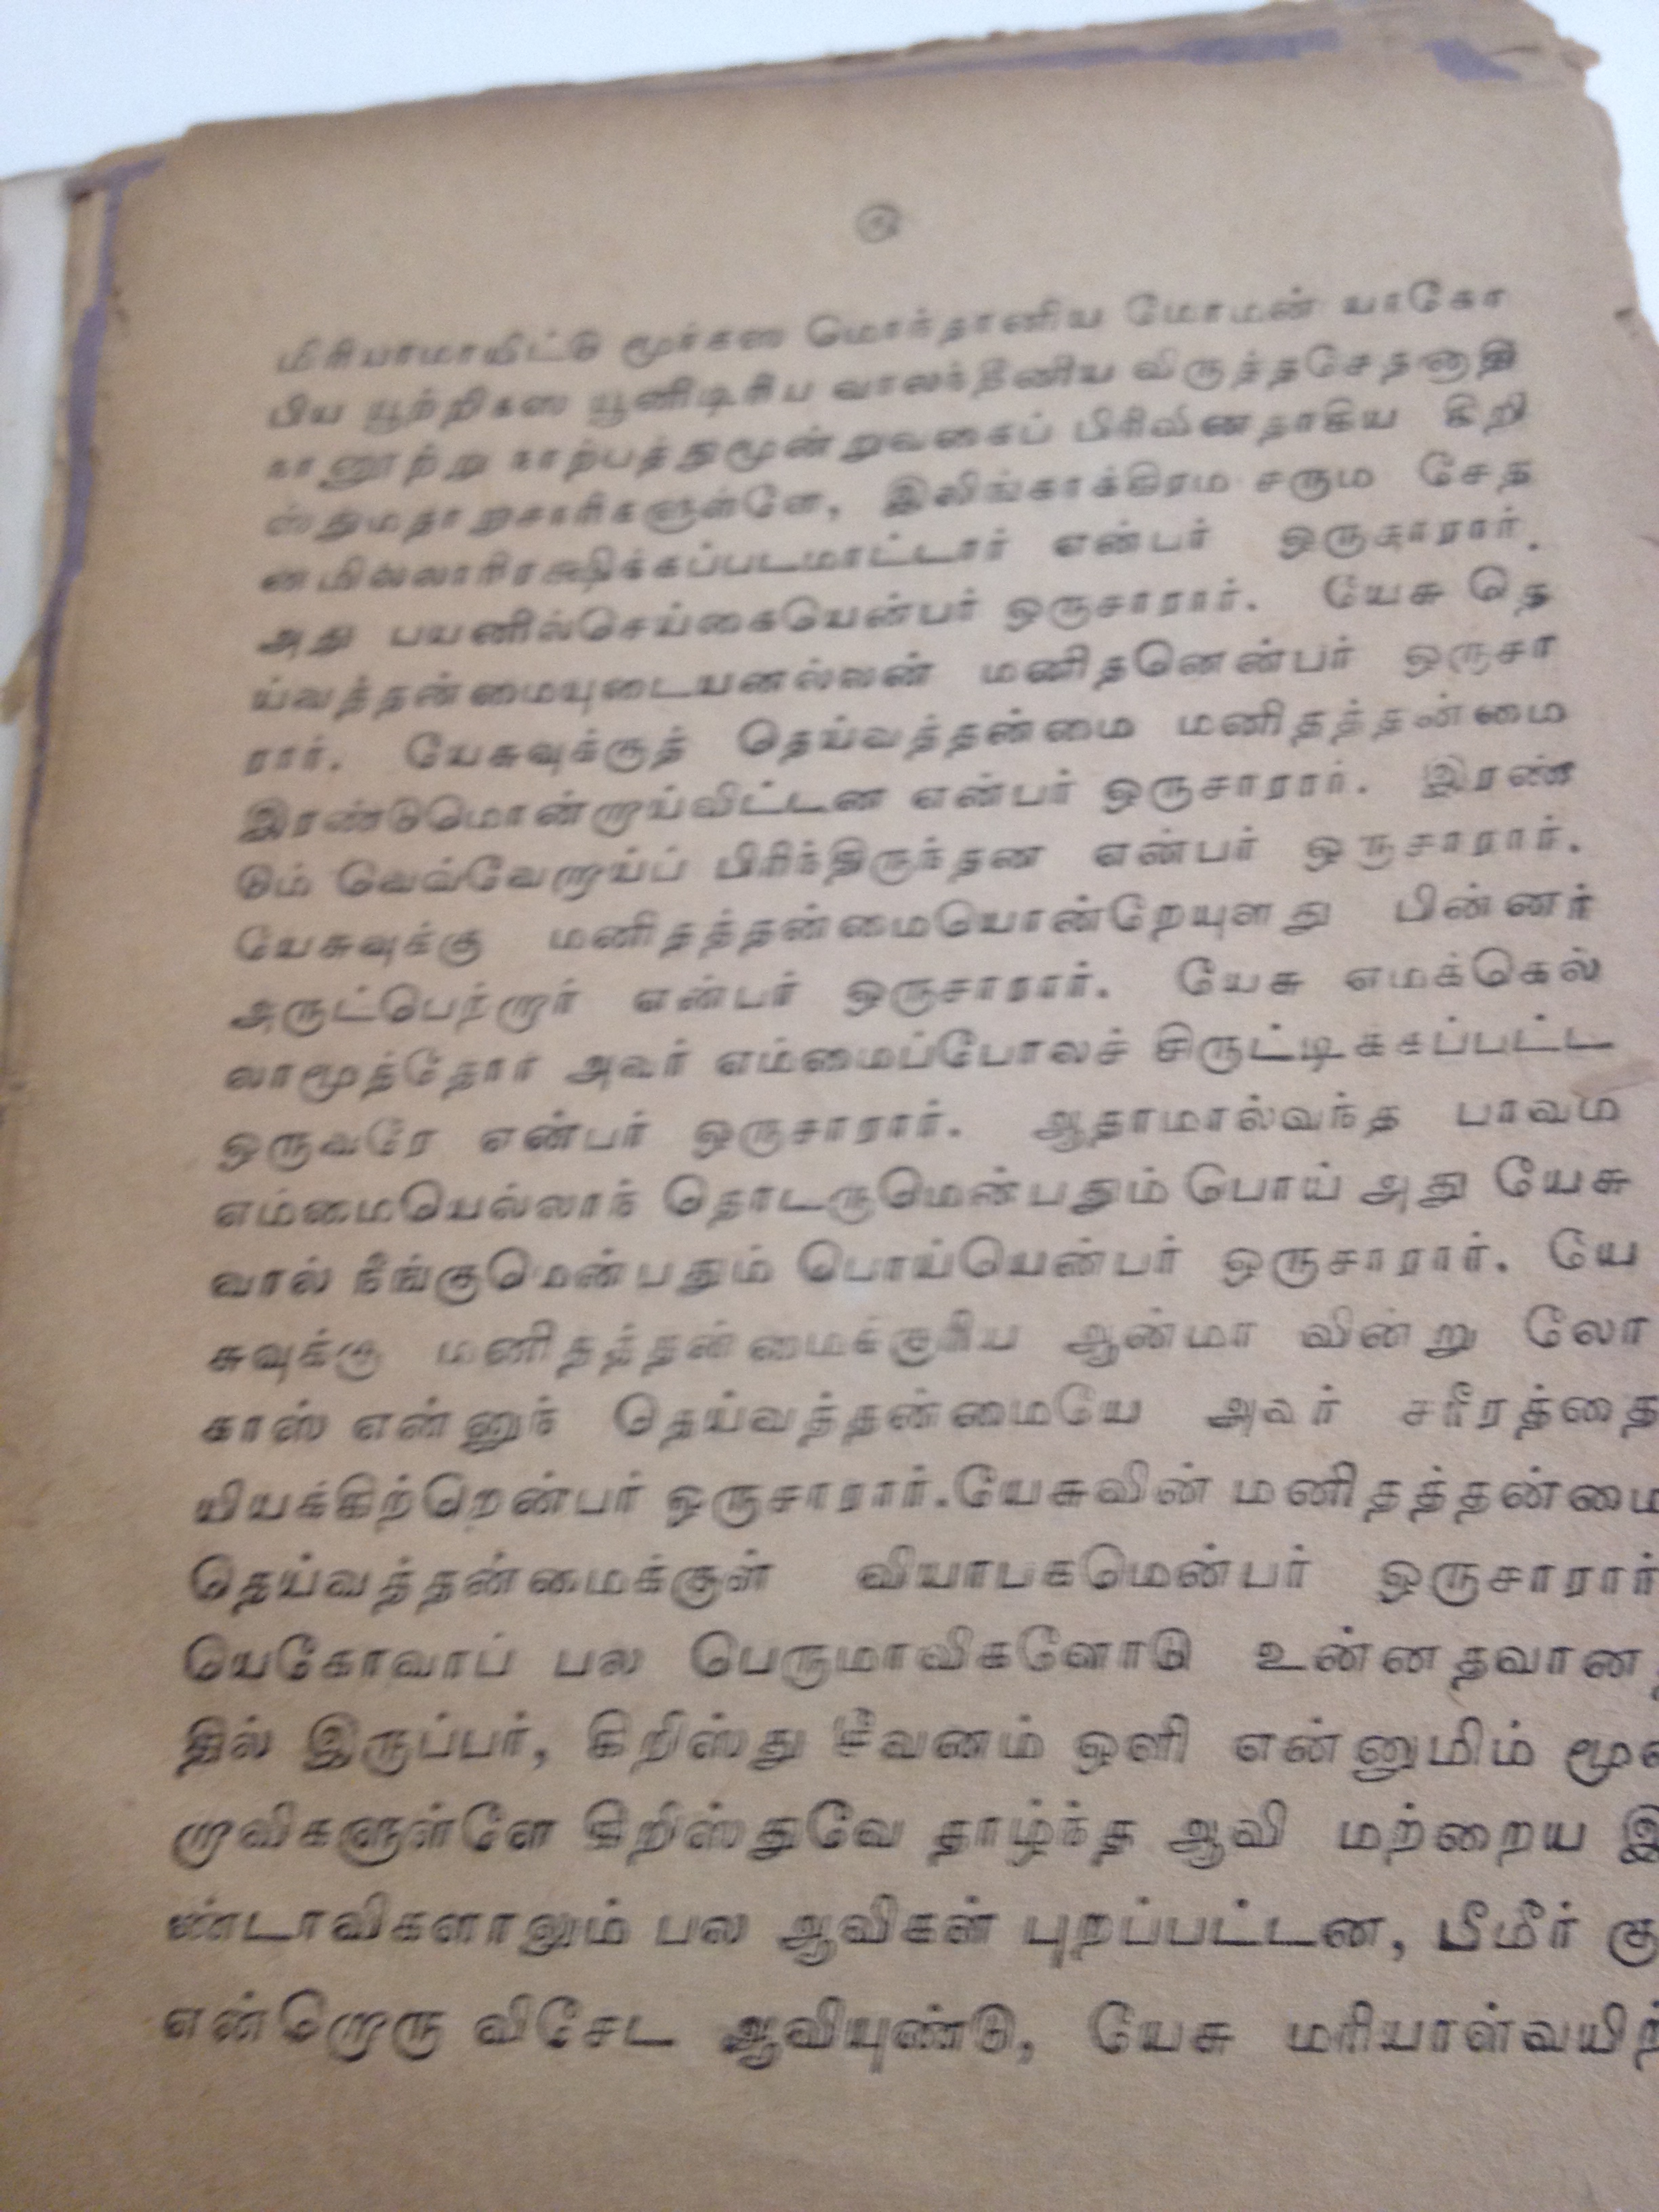 மிரியாமாயிட்டு மூர்கஸ மொர்தானிய மோமன் யாகோ
பிய யூற்றிகஸ யூனிடிரிய வாலந்தினிய விருத்தசேதனாதி
நானூற்று நாற்பத்துமூன்றுவகைப் பிரிவினதாகிய கிறி
ஸ்துமதாறுசாரிகளுள்ளே, இலிங்காக்கிரம சரும சேத
னமில்லாரிரக்ஷிக்கப்படமாட்டார் என்பர் ஒருசாரார்.
அது பயனில்செய்கையென்பர் ஒருசாரார். யேசு தெ
ய்வத்தன்மையுடையனல்லன் மனிதனென்பர் ஒருசா
ரார். யேசுவுக்குத் தெய்வத்தன்மை மனிதத்தன்மை
இரண்டுமொன்றாய்விட்டன என்பர் ஒருசாரார். இரண்
டும் வெவ்வேறாய்ப் பிரிந்திருந்தன என்பர் ஒருசாரார்.
யேசுவுக்கு மனிதத்தன்மையொன்றேயுளது பின்னர்
அருட்பெற்றார் என்பர் ஒருசாரார். யேசு எமக்கெல்
லாமூத்தோர் அவர் எம்மைப்போலச் சிருட்டிக்கப்பட்ட
ஒருவரே என்பர் ஒருசாரார். ஆதாமால்வந்த பாவம்
எம்மையெல்லாந் தொடருமென்பதும் பொய் அது யேசு
வால் நீங்குமென்பதும் பொய்யென்பர் ஒருசாரார். யே
சுவுக்கு மனிதத்தன்மைக்குரிய ஆன்மா வின்று லோ
காஸ் என்னுந் தெய்வத்தன்மையே அவர் சரீரத்தை
யியக்கிற்றென்பர் ஒருசாரார்.யேசுவின் மனிதத்தன்மை
தெய்வத்தன்மைக்குள் வியாபகமென்பர் ஒருசாரார்
யெகோவாப் பல பெருமாவிகளோடு உன்னதவான
தில் இருப்பர், கிறிஸ்து சீவனம் ஒளி என்னுமிம்
றாவிகளுள்ளே கிறிஸ்துவே தாழ்ந்த ஆவி மற்றைய
ண்டாவிகளாலும் பல ஆவிகள் புறப்பட்டன, பீமீர்
என்றொரு விசேட ஆவியுண்டு, யேசு மரியாள்வயிற்